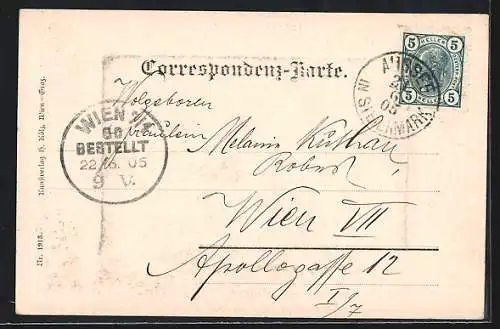 Correspondenz-Karte.
5 HELLER 5
5 HELLER 5
AUSSEE
IN STEIERMARK
05
Wolgeboren
Fräulein
Melanie
Robert
Wien VII
Apollogasse 12
I/7
WIEN 7/1
BESTELLT
22.6.05
9 V.
Nr. 1913. Kunstverlag S. Kölz, Wien-Graz.